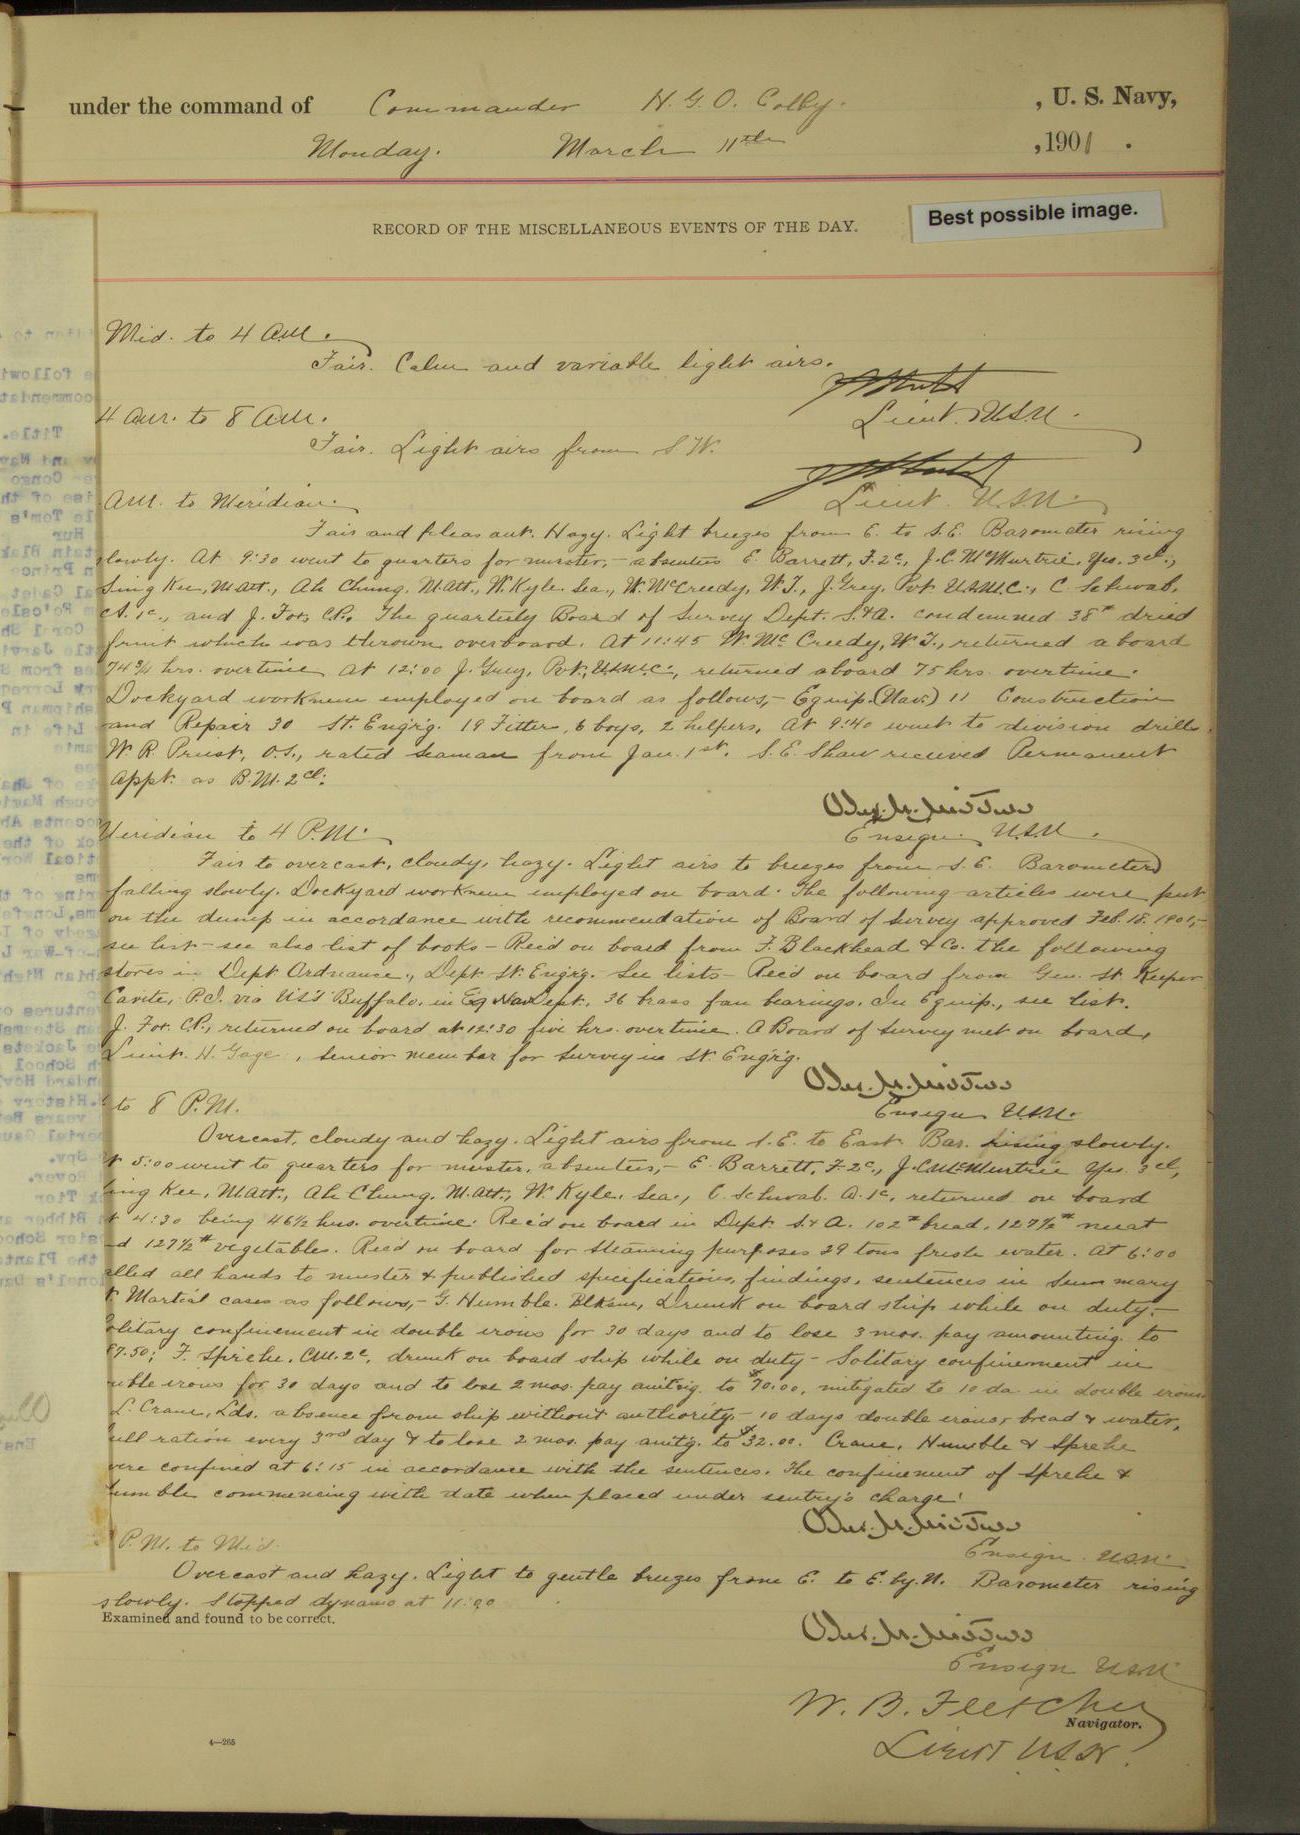 under the command of Commander H. G. O. Colby. , U. S. Navy,
Monday. March 11th , 1901 .
RECORD OF THE MISCELLANEOUS EVENTS OF THE DAY.
Best possible image.
Mid. to 4 A.M.
Fair. Calm and variable light airs.
Lieut. U.S.N.
4 A.M. to 8 A.M.
Fair. Light airs from S.W.
Lieut. U.S.N.
A.M. to Meridian.
Fair and pleasant. Hazy. Light breezes from E. to S.E. Barometer rising
slowly. At 9:30 went to quarters for muster, - absentees E. Barrett, F.2c., J.C. McMurtrie, Yeo. 3cl.,
Sing Kee, M.Att., Ah Chung, M.Att., W. Kyle. Sea., W. McCreedy, W.T., J. Grey, Pvt. U.S.M.C., C. Schwab,
A. 1c., and J. Fox, C.P. The quarterly Board of Survey Dept. S.&A. condemned 38# dried
fruit which was thrown overboard. At 11:45 W. McCreedy, W.T., returned aboard
74 3/4 hrs. overtime. At 12:00 J. Grey, Pvt., U.S.M.C., returned aboard 75 hrs. overtime.
Dockyard workmen employed on board as follows, - Equip. (Nav.) 11 Construction
and Repair 30 St. Eng'r'g. 19 Fitters, 6 boys, 2 helpers. At 9:40 went to division drills.
W R Prust, O.S., rated seaman from Jan. 1st. S. E. Shaw received Permanent
Appt. as B.M. 2cl.
Ensign. U.S.N.
Meridian to 4 P.M.
Fair to overcast, cloudy, hazy. Light airs to breezes from S.E. Barometer
falling slowly. Dockyard workmen employed on board. The following articles were put
on the dump in accordance with recommendation of Board of Survey approved Feb. 18. 1901, -
see list - see also list of books - Rec'd on board from F. Blackhead & Co. the following
stores in Dept. Ordnance., Dept. St. Eng'r'g. See lists - Rec'd on board from Gen. St. Keeper
Cavite, P.I. via U.S.S. Buffalo. in Eq. Nav. Dept., 36 brass fan bearings. In Equip., see list.
J. Fox. C.P., returned on board at 12:30 five hrs. overtime. A Board of Survey met on board,
Lieut. H. Gage, senior member for survey in St. Eng'r'g.
Ensign U.S.N.
to 8 P.M.
Overcast, cloudy and hazy. Light airs from S.E. to East. Bar. rising slowly.
At 5:00 went to quarters for muster, absentees, - E. Barrett, F.2c., J.C. McMurtrie Yeo. 3cl,
Sing Kee, M.Att., Ah Chung, M.Att., W. Kyle. Sea., C. Schwab. A. 1c. returned on board
at 4:30 being 46 1/2 hrs. overtime. Rec'd on board in Dept. S.& A. 102# bread, 127 1/2# meat
and 127 1/2# vegetables. Rec'd on board for steaming purposes 29 tons fresh water. At 6:00
called all hands to muster & published specifications, findings, sentences in Summary
Ct. Martial cases as follows, - G. Humble. Blksm., Drunk on board ship while on duty, -
Solitary confinement in double irons for 30 days and to lose 3 mos. pay amounting to
87.50; F. Sprehe. C.M. 2c., drunk on board ship while on duty - Solitary confinement in
double irons for 30 days and to lose 2 mos. pay am't'g. to $70.00, mitigated to 10 da. in double irons
L. Crane, Lds. absence from ship without authority, - 10 days double irons, bread & water,
full ration every 3rd day & to lose 2 mos. pay amt'g. to $32.00. Crane, Humble & Sprehe
were confined at 6:15 in accordance with the sentences. The confinement of Sprehe &
Humble commencing with date when placed under sentry's charge.
Ensign. U.S.N.
P.M. to Mid.
Overcast and hazy. Light to gentle breezes from E. to E. by N. Barometer rising
slowly. Stopped dynamo at 11:00
Examined and found to be correct.
Ensign U.S.N.
W. B. Fletcher
Navigator.
Lieut U.S.N.
4—265